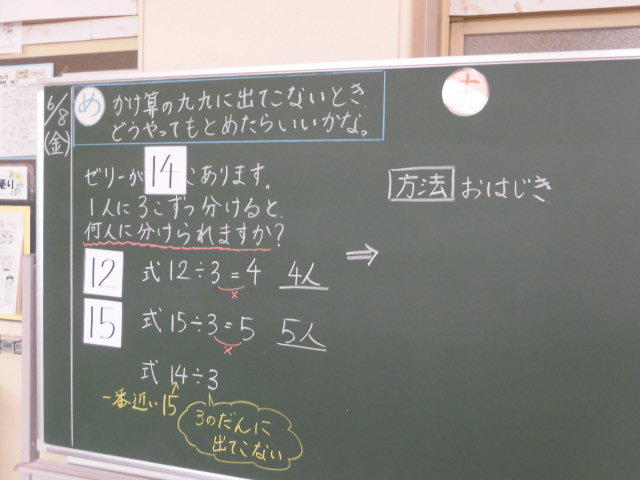 6/8
(金)
め
かけ算の九九に出てこないとき
どうやってもとめたらいいかな。
ゼリーが14こあります。
1人に3こずつ分けると、
何人に分けられますか?
12 式 12÷3=4 4人
×
15 式 15÷3=5 5人
×
式 14÷3
一番近い15
3のだんに
出てこない
⇒
方法 おはじき